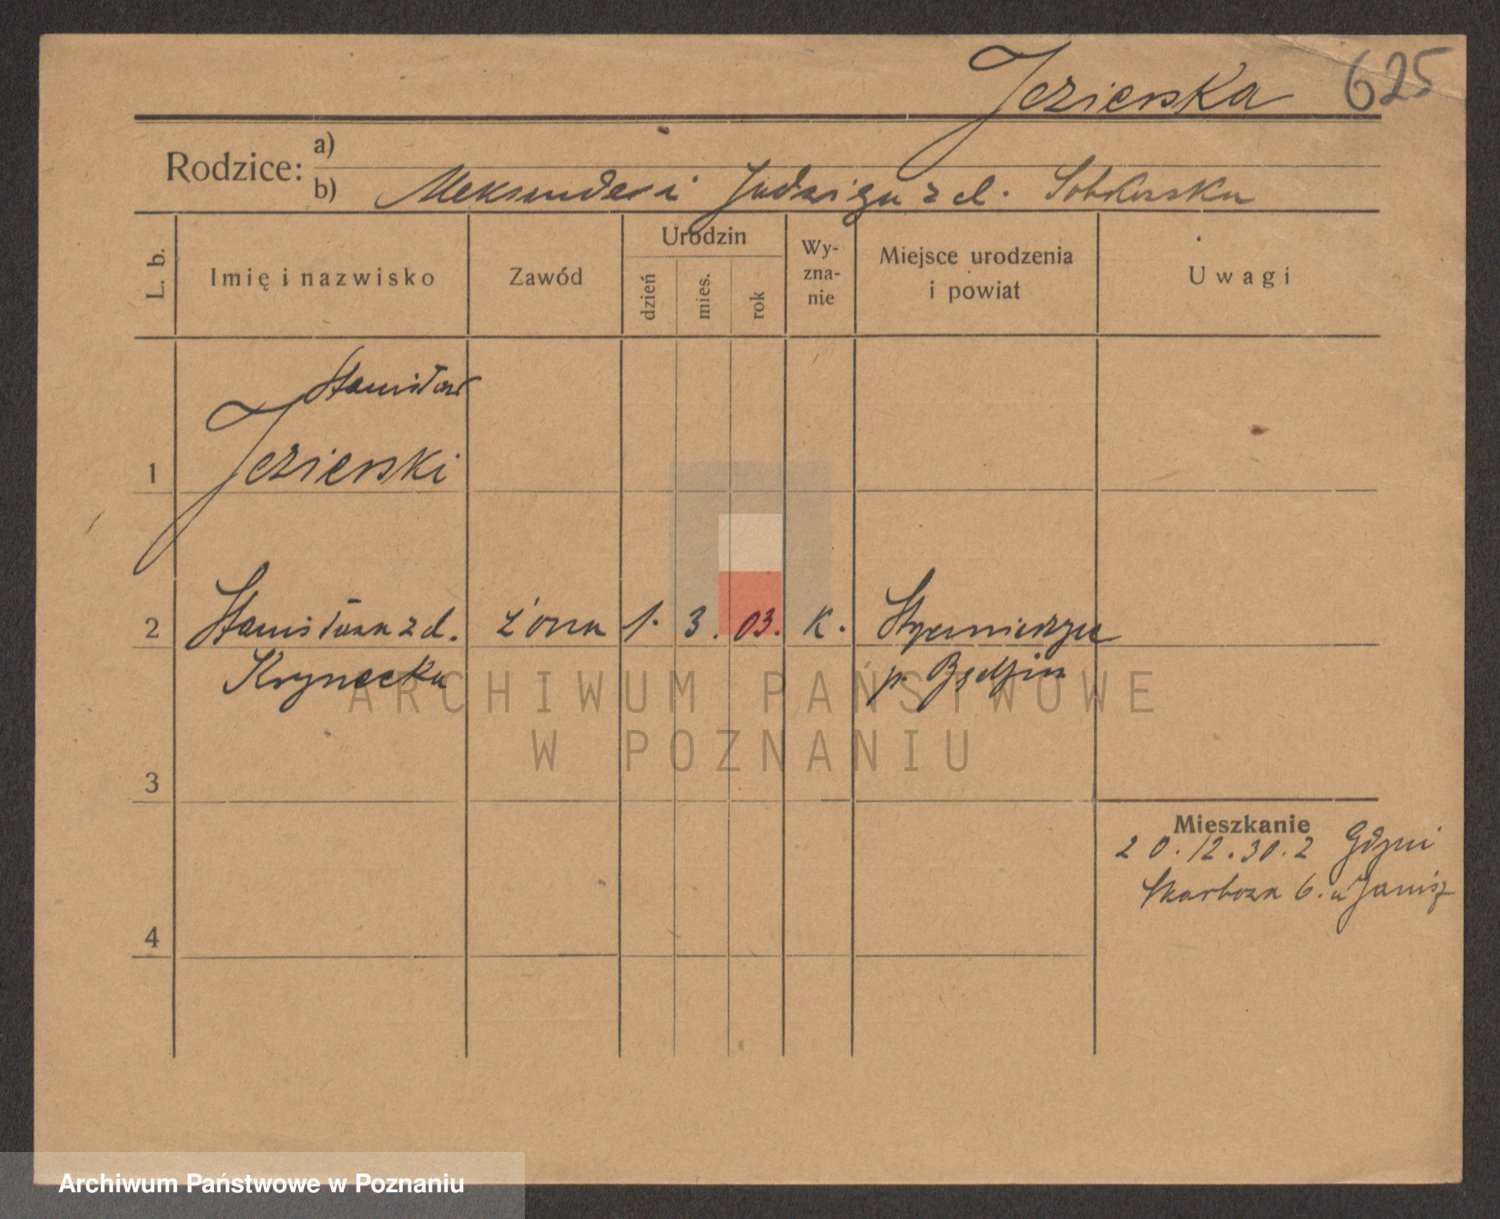 Jezierska 625
Rodzice: a)
b) Aleksander i Jadwiga z d.
L. b.
Imię i nazwisko
Zawód
Urodzin
dzień
mies.
rok
Wy-
zna-
nie
Miejsce urodzenia
i powiat
Uwagi
Stanisław
1 Jezierski
2 Stanisława z d. żona 1. 3. 03. K.
Krynecka p. Będzin
ARCHIWUM PAŃSTWOWE
W POZNANIU
3
Mieszkanie
20.12.30. z Gdyni
Skarbowa 6. u
4
Archiwum Państwowe w Poznaniu